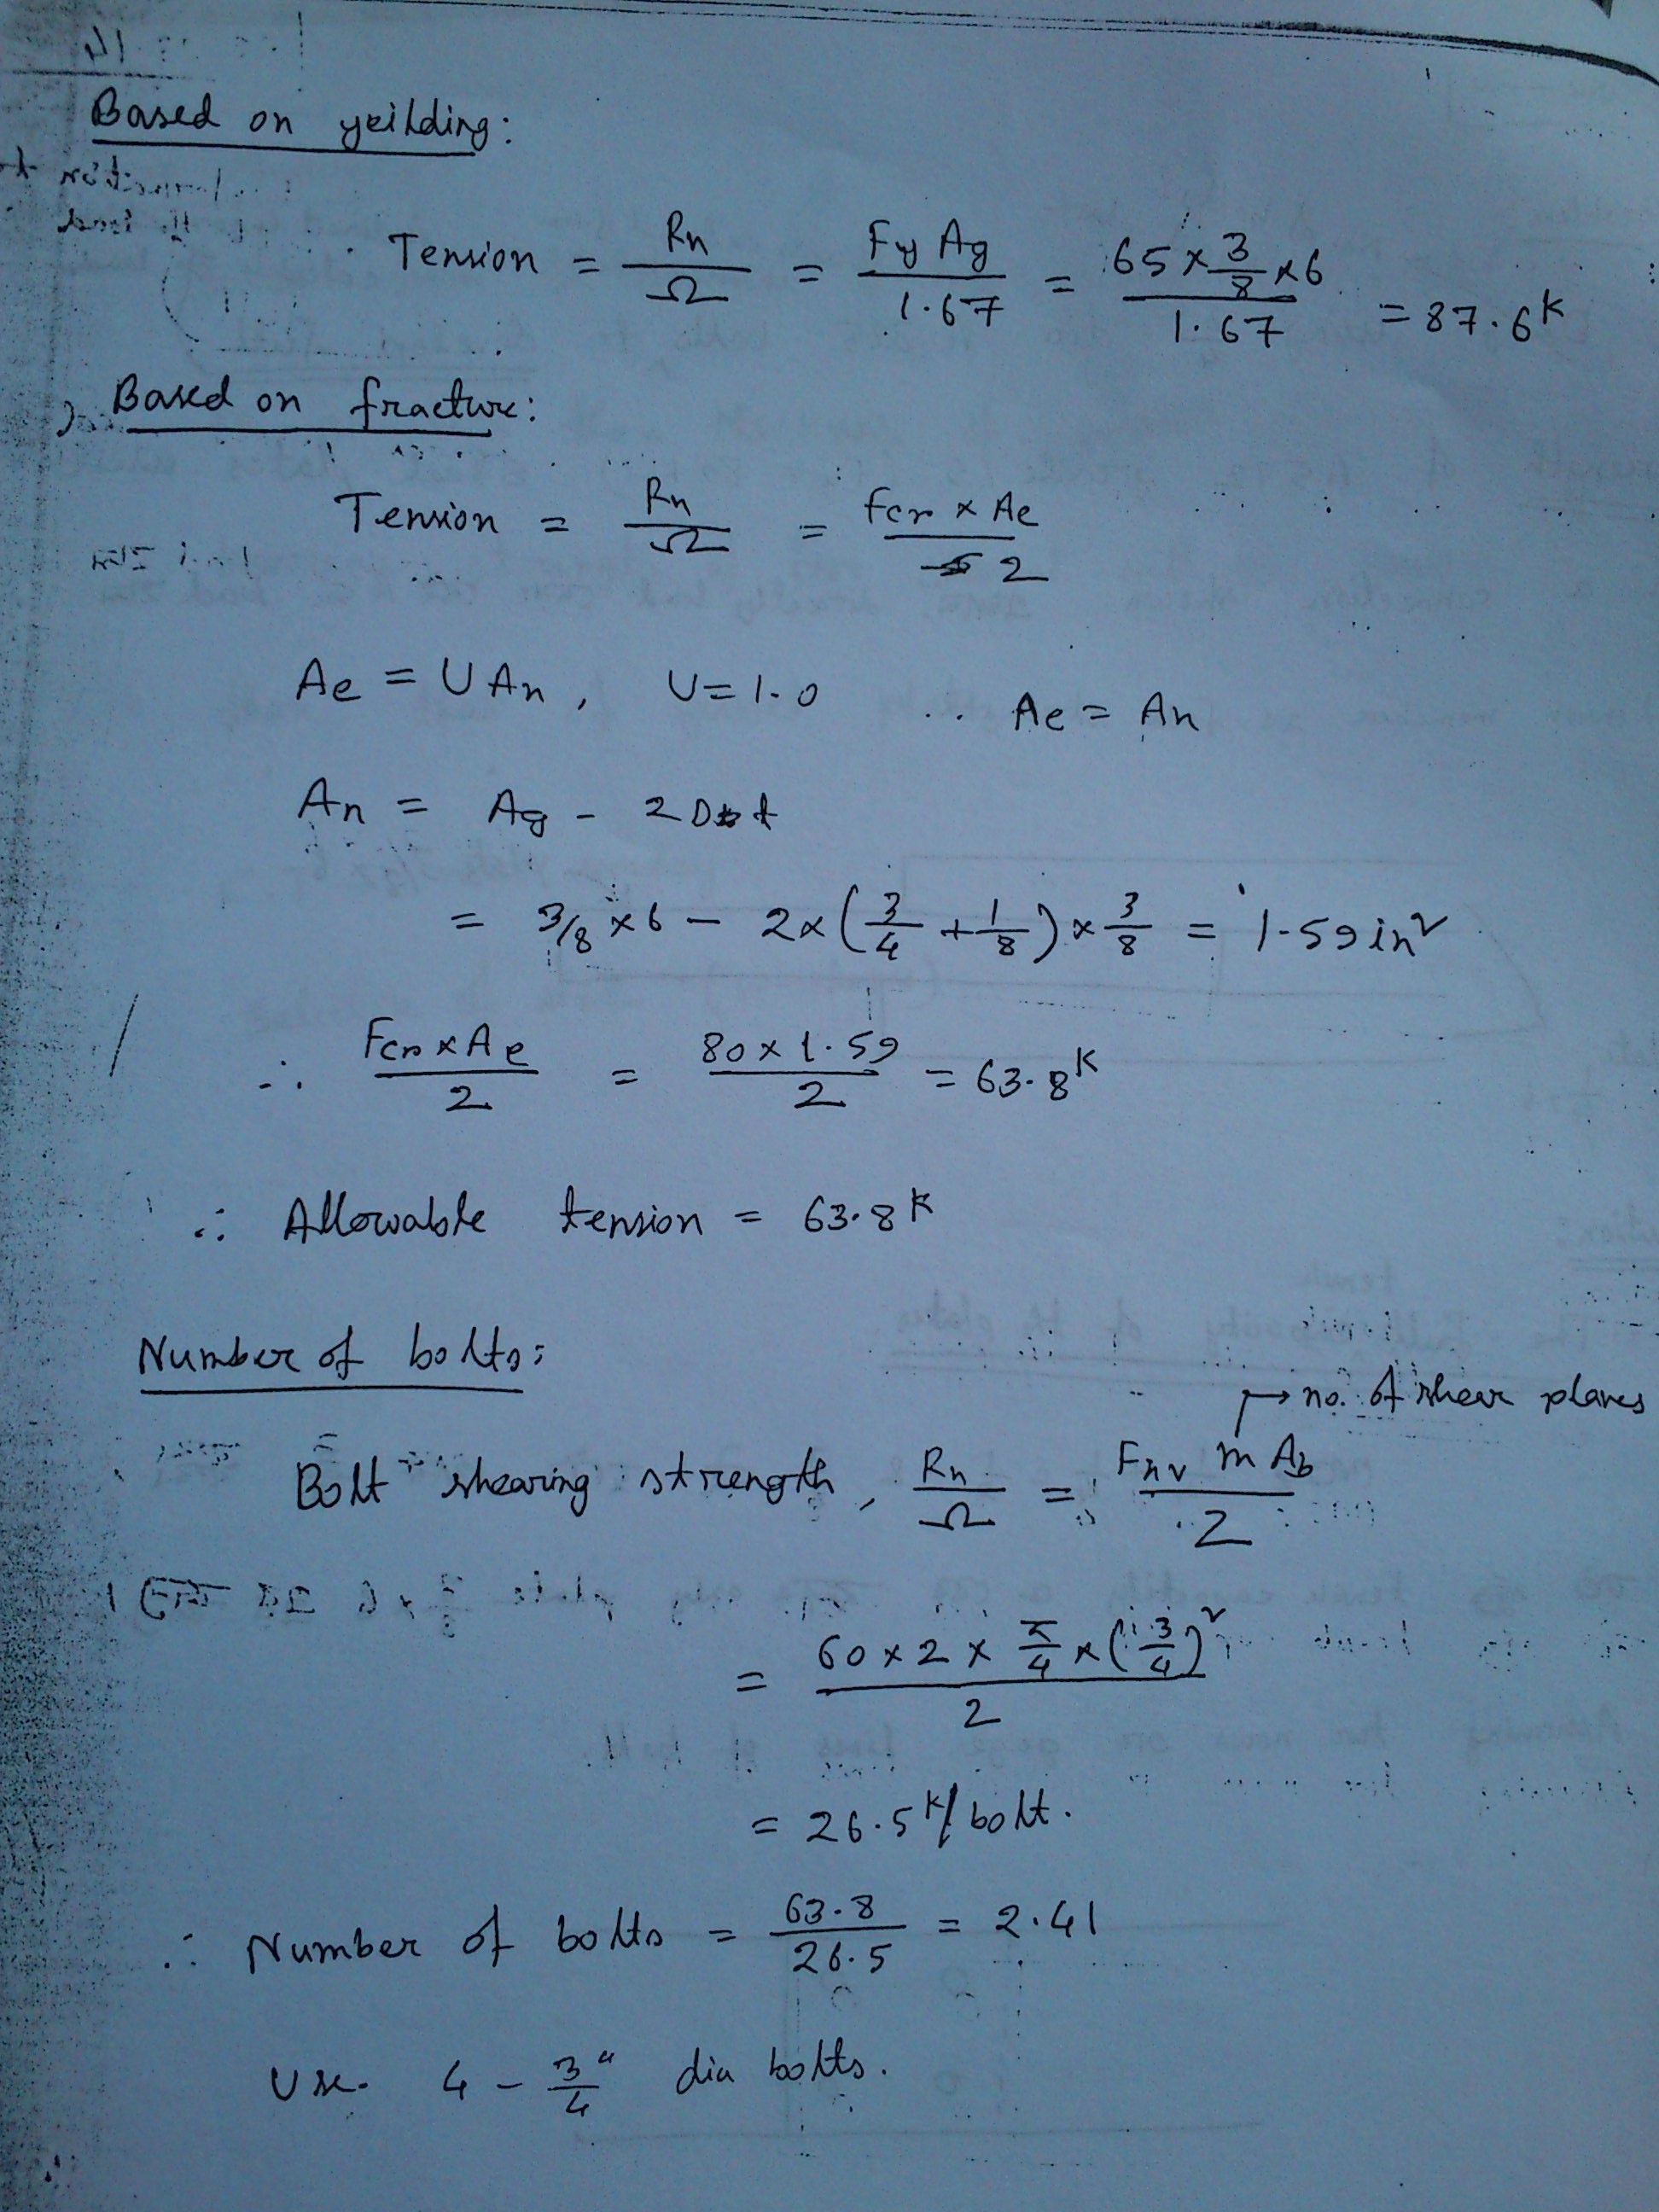 Based on yeilding:
Tension = Rn/Ω = Fy Ag/1.67 = 65 × 3/8 × 6/1.67 = 87.6 k
Based on fracture:
Tension = Rn/Ω = Fcr × Ae/2
Ae = U An, U = 1.0 ∴ Ae = An
An = Ag - 2 D t
= 3/8 × 6 - 2 × (3/4 + 1/8) × 3/8 = 1.59 in²
∴ Fcr × Ae/2 = 80 × 1.59/2 = 63.8 k
∴ Allowable tension = 63.8 k
Number of bolts:
→ no. of shear planes
Bolt shearing strength, Rn/Ω = Fnv m Ab/2
= 60 × 2 × π/4 × (3/4)²/2
= 26.5 k/bolt.
∴ Number of bolts = 63.8/26.5 = 2.41
Use 4 - 3/4" dia bolts.